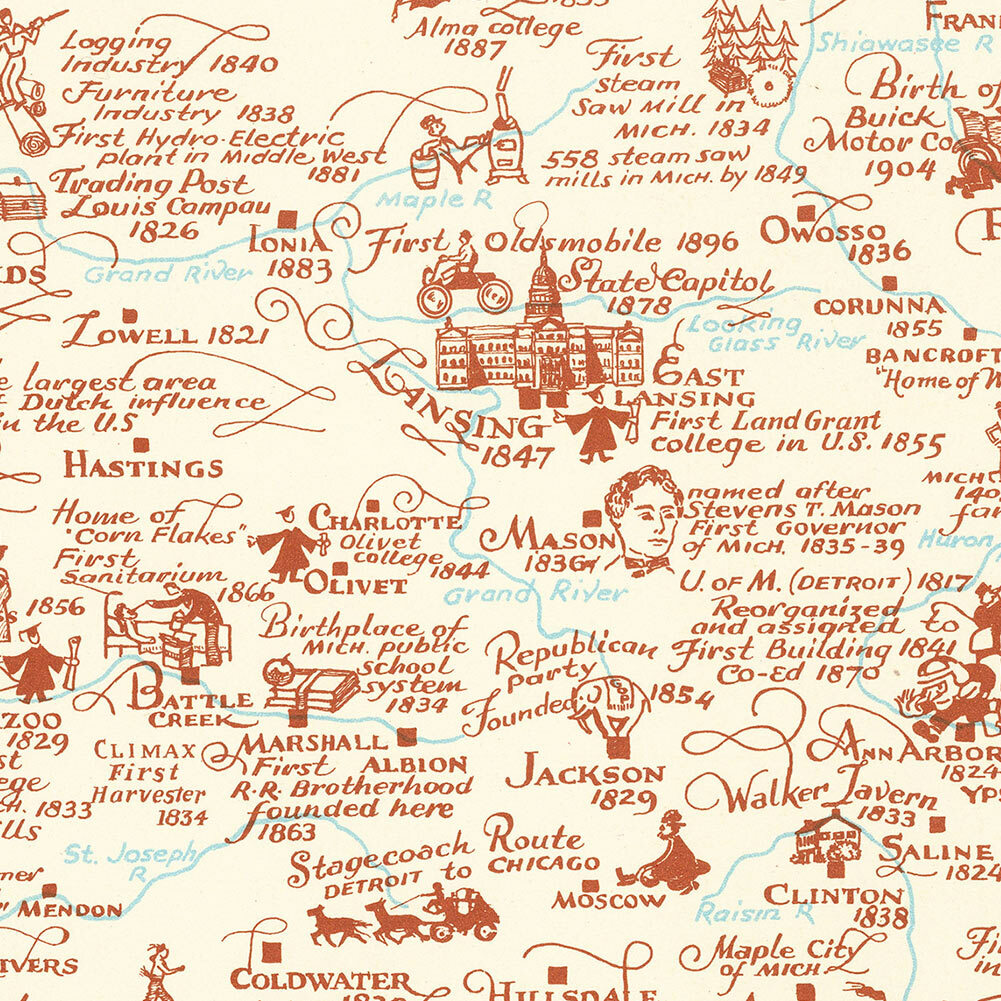 1855
Alma college
1887
Logging
Industry 1840
Furniture
Industry 1838
First Hydro-Electric
plant in Middle West
1881
Trading Post
Louis Campau
1826
First
steam
Saw Mill in
MICH. 1834
558 steam saw
mills in MICH. by 1849
Shiawasee R
Birth of
Buick
Motor Co
1904
Maple R
IONIA
1883
Grand River
First Oldsmobile 1896
State Capitol
1878
OWOSSO
1836
CORUNNA
1855
Looking
Glass River
BANCROFT
"Home of
LOWELL 1821
largest area
Dutch influence
in the U.S
HASTINGS
LANSING
1847
EAST
LANSING
First Land Grant
college in U.S. 1855
Home of
"Corn Flakes"
First
Sanitarium
1866
CHARLOTTE
Olivet
college
1844
OLIVET
MASON
1836
named after
Stevens T. Mason
First Governor
of MICH. 1835-39
MICH
Huron
Grand River
U. OF M. (DETROIT) 1817
Reorganized
and assigned to
First Building 1841
Co-Ed 1870
1856
Birthplace of
MICH. public
school
system
1834
Republican
party
Founded
1854
GOP
BATTLE
CREEK
ZOO
1829
CLIMAX
First
Harvester
1834
MARSHALL
First
R.R. Brotherhood
founded here
1863
ALBION
JACKSON
1829
ANN ARBOR
1824
Walker Tavern
1833
1833
St. Joseph
R
MENDON
Stagecoach Route
DETROIT to CHICAGO
MOSCOW
SALINE
1824
CLINTON
1838
Raisin R
IVERS
COLDWATER
HILLSDALE
Maple City
of MICH.